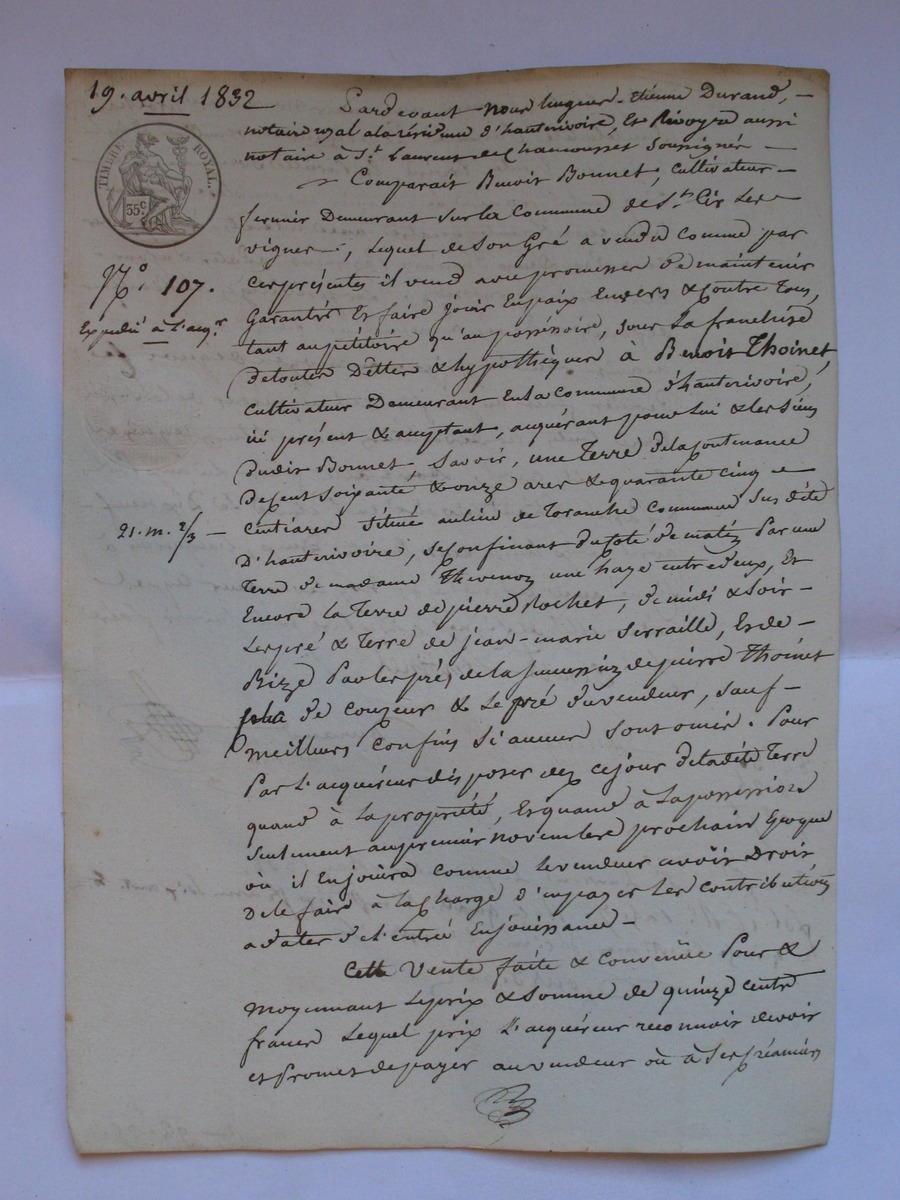 19. avril 1832
Pardevant Nous hugues-Etienne Durand, —
notaire royal à la résidence d'hauterivoire, Et Revoyre aussi
notaire à St. Laurent de Chamousset Soussignés —
Comparait Benoit Bonnet, Cultivateur
TIMBRE ROYAL.
35 c
fermier Demeurant Sur la Commune de St. Cir Les
vignes, Lequel de Son Gré a vendu comme par
N° 107.
Ces présentes il vend avec promesse de maintenir
Expédié à l'acqr.
Garantir Et faire jouir En paix Envers & Contre Tous,
tant au pétitoire qu'au possessoire, sous La franchise
de toutes Dettes & hypothèques à Benoit Thoinet
Cultivateur Demeurant En la Commune d'hauterivoire,
ici présent & acceptant, acquérant pour Lui & les Siens
Dudit Bonnet Savoir, une Terre de la Contenance
De Cent Soixante & onze ares & quarante Cinq
21. m. 2/3 —
Centiares Située au lieu de Toranche Commune Sus dite
D'hauterivoire, Se Confinant du Coté de matin Par une
Terre de madame Thevenon une haye entre deux, Et
Encore la Terre de pierre Rochet, de midi & Soir —
Les pré & Terre de jean-marie Serraille, Et de —
Bize Par les prés de la succession de pierre Thoinet
de Couzeur & Le pré du vendeur, Sauf —
meilleurs Confins Si aucuns Sont omis. Pour
Par L'acquéreur disposer dez ce jour de ladite Terre
quand à La propriété, Et quand à La possession
Seulement au premier novembre prochain Epoque
où il En jouira Comme le vendeur avait Droit
De le faire à la Charge d'en payer Les Contributions
à dater de L'entrée En jouissance —
Cette Vente faite & Convenüe Pour &
Moyennant Le prix & Somme de quinze Cents
francs Lequel prix L'acquéreur reconnoit devoir
et Promet de payer au vendeur où à Ses Créanciers